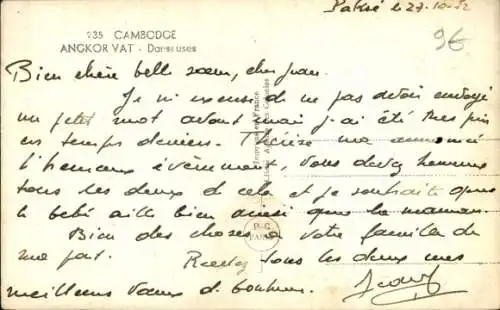 Paksé le 27-10-52
9€
235 CAMBODGE
ANGKOR VAT - Danseuses
Bien chère belle sœur, cher Jean.
Je m'excuse de ne pas avoir envoyé
un petit mot avant mais j'ai été très pris
ces temps derniers. Thérèse m'a annoncé
l'heureux évènement, vous devez heureux
tous les deux de cela et je souhaite que
le bébé aille bien ainsi que la maman.
Bien des choses à votre famille de
ma part. Recevez tous les deux mes
meilleurs vœux de bonheur.